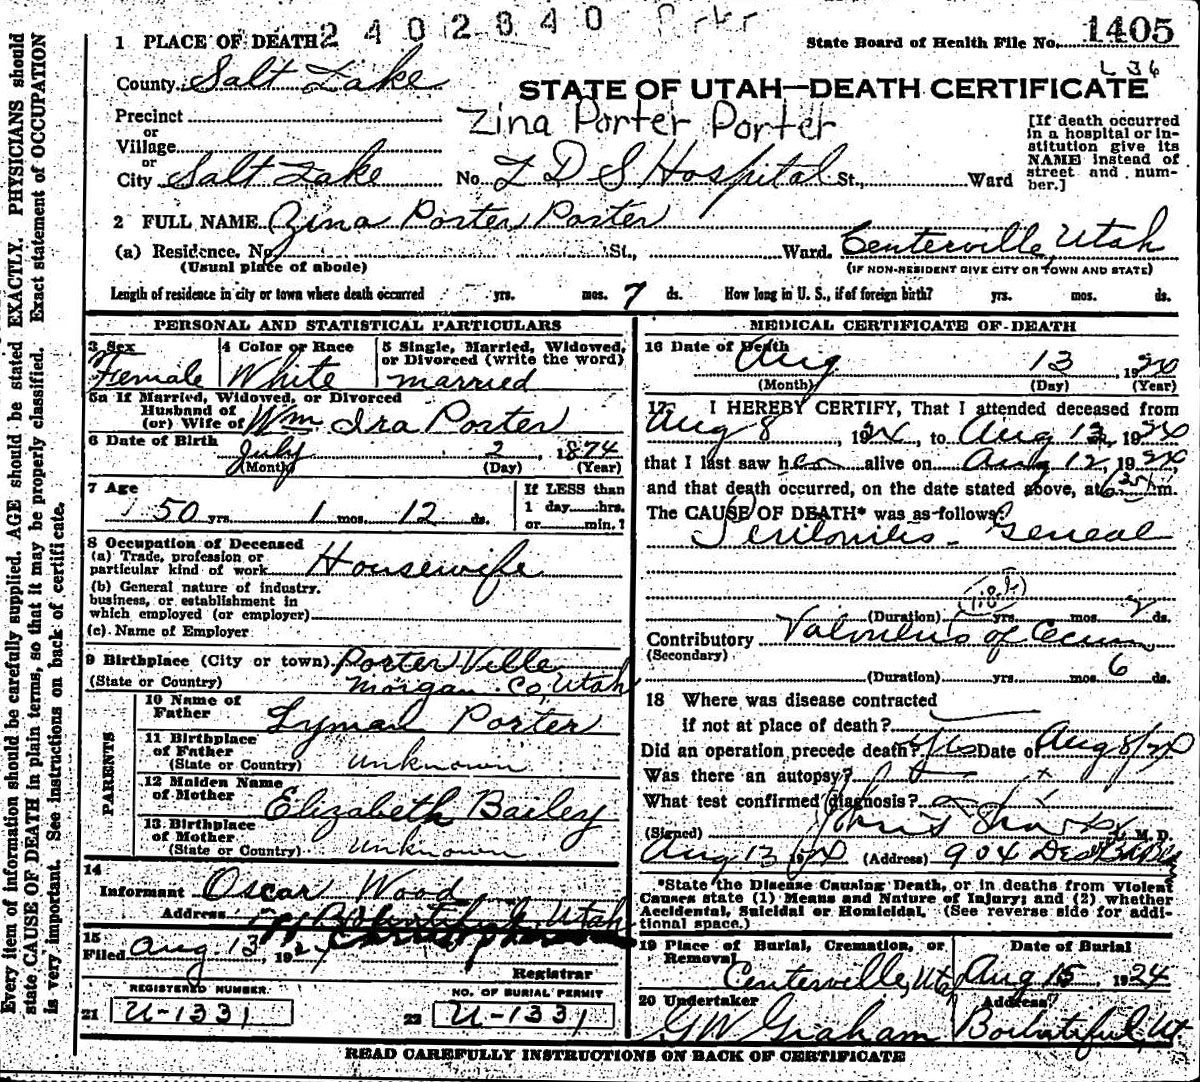 2402840
1 PLACE OF DEATH
State Board of Health File No. 1405
L 36
County Salt Lake
STATE OF UTAH—DEATH CERTIFICATE
Precinct
Zina Porter Porter
[If death occurred in a hospital or institution give its NAME instead of street and number.]
or
Village
or
City Salt Lake No. L D S Hospital St., Ward
2 FULL NAME Zina Porter Porter
(a) Residence. No. St., Ward. Centerville, Utah
(Usual place of abode) (IF NON-RESIDENT GIVE CITY OR TOWN AND STATE)
Length of residence in city or town where death occurred yrs. mos. 7 ds. How long in U. S., if of foreign birth? yrs. mos. ds.
PERSONAL AND STATISTICAL PARTICULARS
3 Sex Female
4 Color or Race White
5 Single, Married, Widowed, or Divorced (write the word) married
5a If Married, Widowed, or Divorced
Husband of
(or) Wife of Wm Ira Porter
6 Date of Birth
July 2, 1874
(Month) (Day) (Year)
7 Age
50 yrs 1 mos. 12 ds.
If LESS than
1 day hrs.
or min.?
8 Occupation of Deceased
(a) Trade, profession or
particular kind of work Housewife
(b) General nature of industry,
business, or establishment in
which employed (or employer)
(c) Name of Employer
9 Birthplace (City or town) Porter Ville
(State or Country) Morgan Co, Utah
PARENTS
10 Name of
Father Lyman Porter
11 Birthplace
of Father
(State or Country) unknown
12 Maiden Name
of Mother Elizabeth Bailey
13 Birthplace
of Mother
(State or Country) unknown
14
Informant Oscar Wood
Address Utah
15
Filed Aug. 13, 1924
Registrar
REGISTERED NUMBER
21 U-1331
NO. OF BURIAL PERMIT
22 U-1331
MEDICAL CERTIFICATE OF DEATH
16 Date of Death
Aug 13, 1924
(Month) (Day) (Year)
17 I HEREBY CERTIFY, That I attended deceased from
Aug 8, 1924, to Aug 13, 1924
that I last saw her alive on Aug 12, 1924
and that death occurred, on the date stated above, at m.
The CAUSE OF DEATH* was as follows:
Peritonitis - General
(Duration) yrs mos 2 ds.
Contributory Volvulus of Cecum
(Secondary)
(Duration) yrs mos. 6 ds.
18 Where was disease contracted
if not at place of death?
Did an operation precede death? Yes Date of Aug 8/24
Was there an autopsy?
What test confirmed diagnosis?
(Signed) M. D.
Aug 13 1924 (Address) 904
*State the Disease Causing Death, or in deaths from Violent
Causes state (1) Means and Nature of Injury; and (2) whether
Accidental, Suicidal or Homicidal. (See reverse side for addi-
tional space.)
19 Place of Burial, Cremation, or
Removal Centerville, Uta
Date of Burial
Aug 15 1924
20 Undertaker
G W Graham
Address?
Bountiful, Ut
READ CAREFULLY INSTRUCTIONS ON BACK OF CERTIFICATE
Every item of information should be carefully supplied. AGE should be stated EXACTLY. PHYSICIANS should
state CAUSE OF DEATH in plain terms, so that it may be properly classified. Exact statement of OCCUPATION
is very important. See instructions on back of certificate.